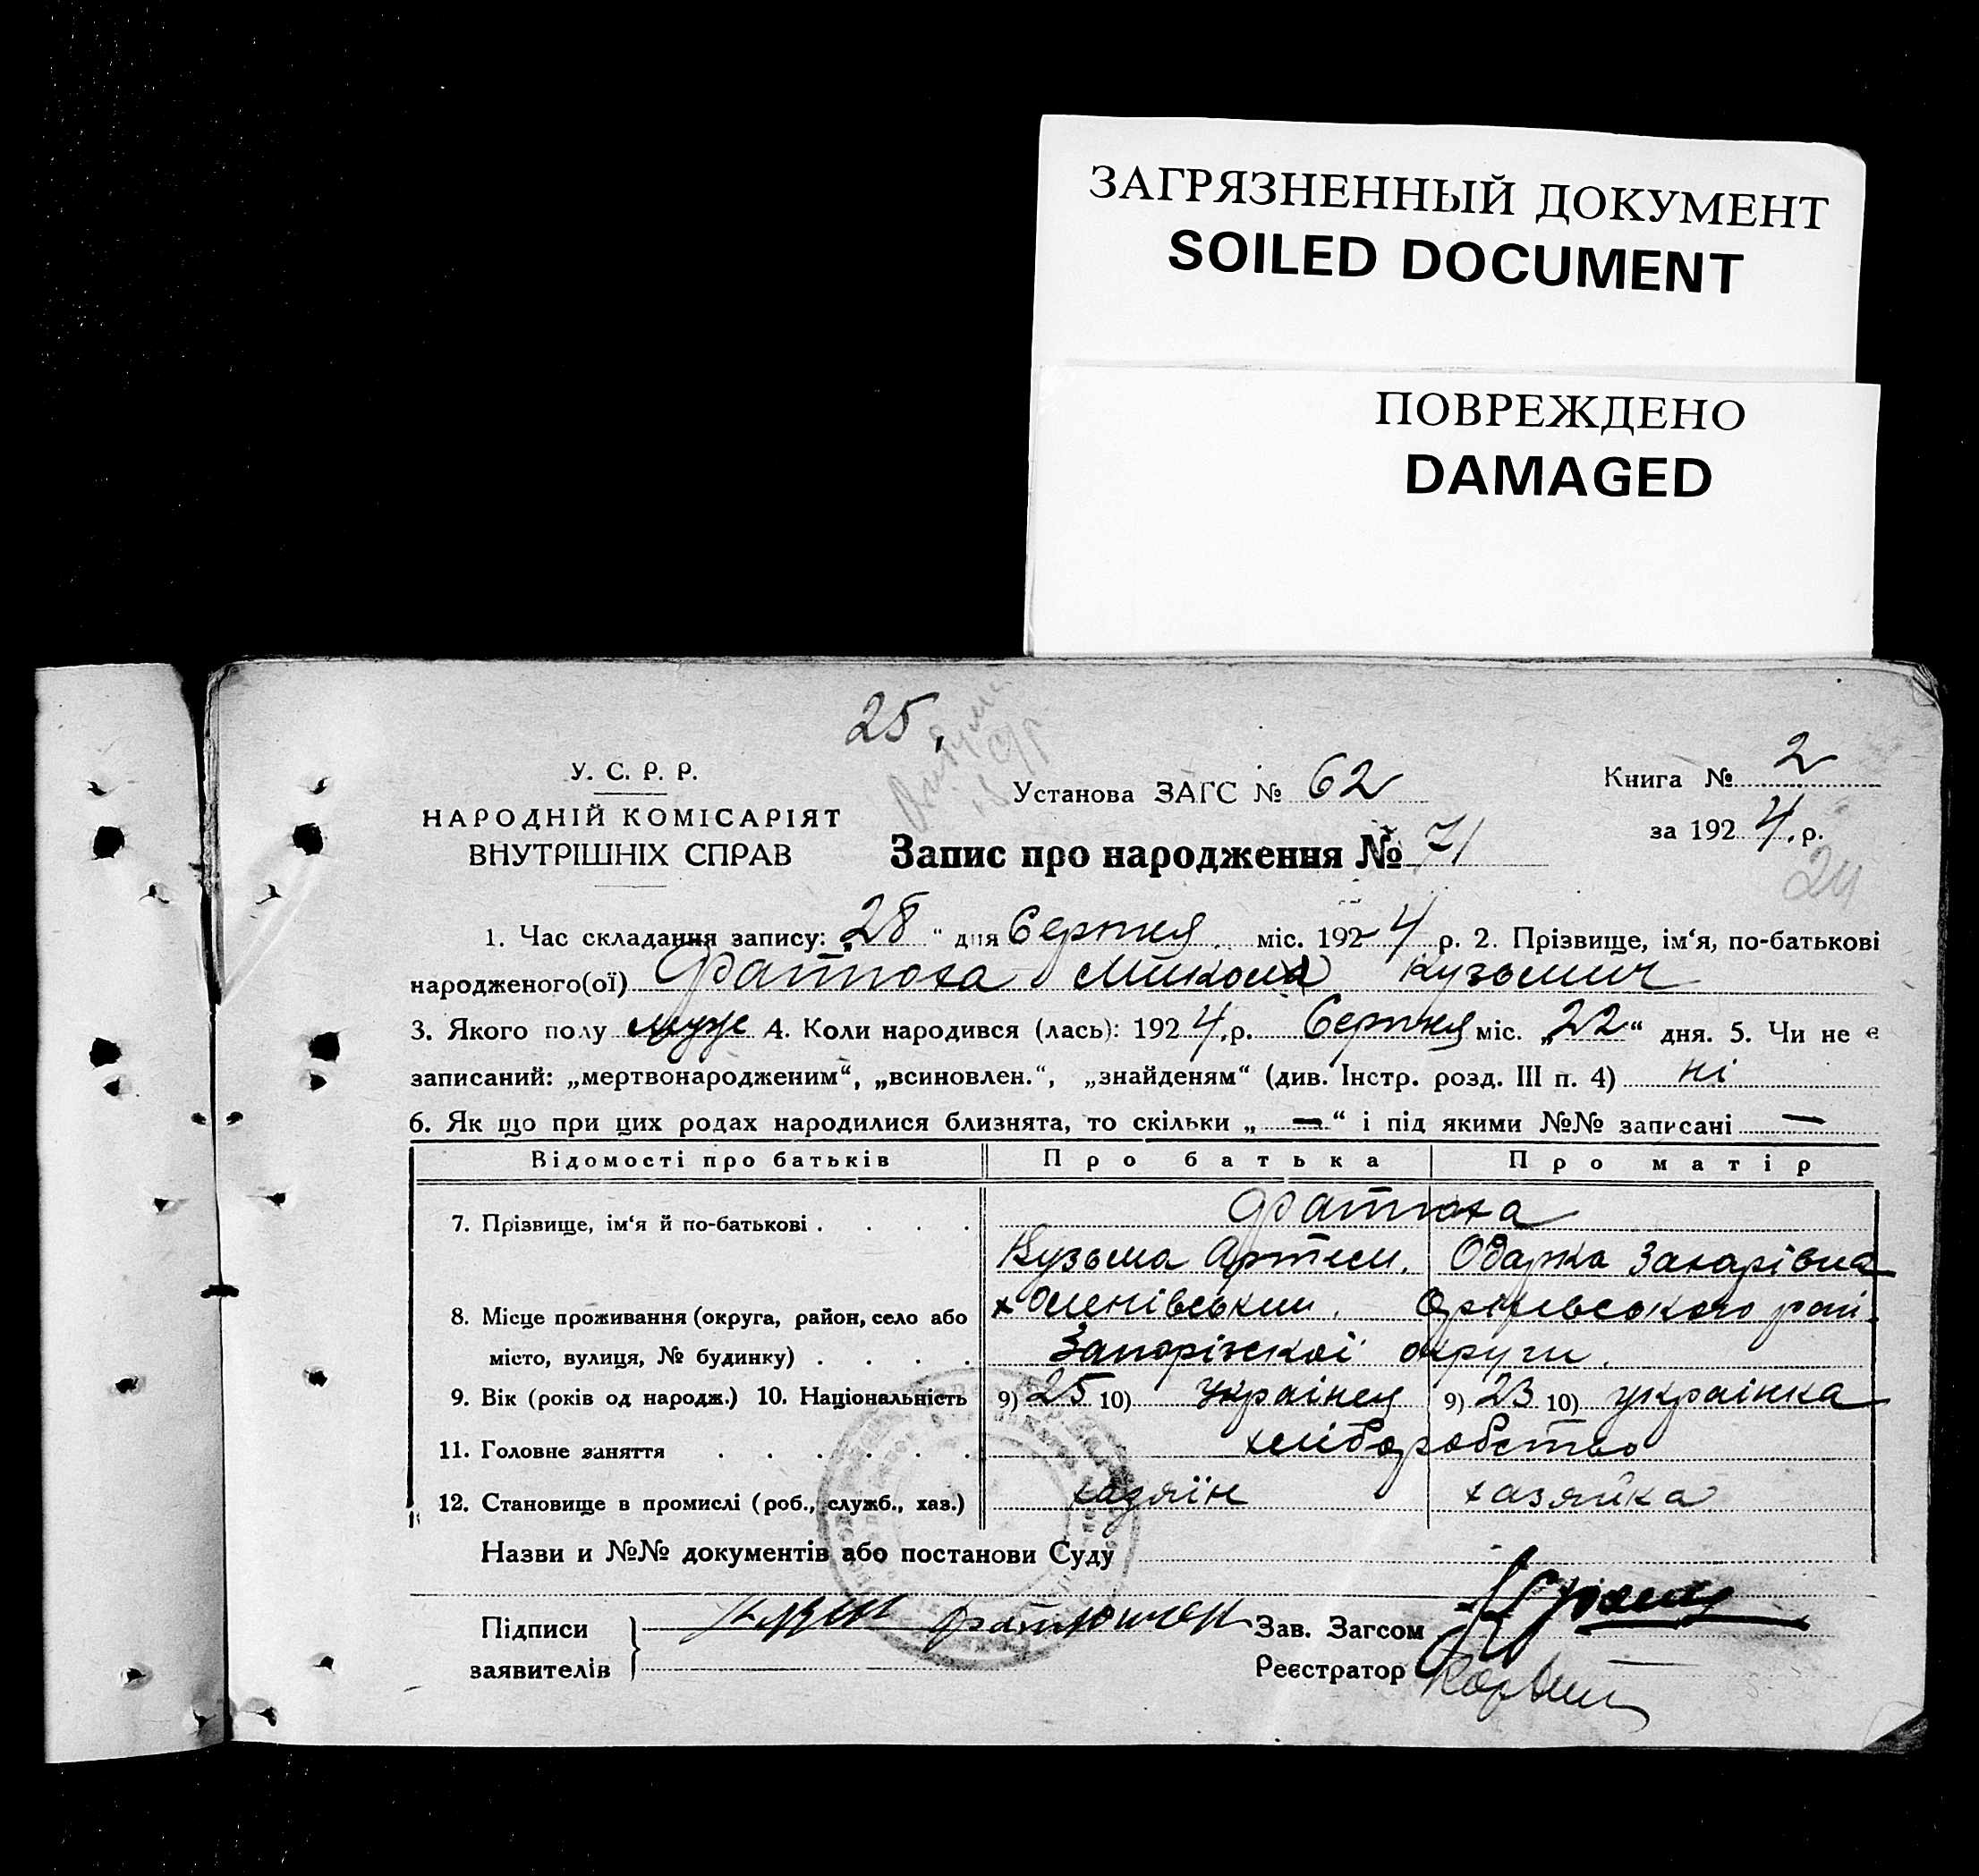 ЗАГРЯЗНЕННЫЙ ДОКУМЕНТ
SOILED DOCUMENT
ПОВРЕЖДЕНО
DAMAGED
25,
У. С. Р. Р.
НАРОДНІЙ КОМІСАРІЯТ
ВНУТРІШНІХ СПРАВ
Установа ЗАГС № 62
Книга № 2
за 1924 р.
24
Запис про народження № 71
1. Час складання запису: „28“ дня Серпня міс. 1924 р. 2. Прізвище, ім‘я, по-батькові
народженого(ої) Фатюха Микола Кузьмич
3. Якого полу муж 4. Коли народився (лась): 1924 р. Серпня міс. „22“ дня. 5. Чи не є
записаний: „мертвонародженим“, „всиновлен.“, „знайденям“ (див. Інстр. розд. III п. 4) ні
6. Як що при цих родах народилися близнята, то скільки „—“ і під якими №№ записані —
Відомості про батьків Про батька Про матір
7. Прізвище, ім‘я й по-батькові . . . . Фатюха
Кузьма Артем. Одарка Захарівна
8. Місце проживання (округа, район, село або Оріхівського рай.
місто, вулиця, № будинку) . . . . Запоріжскої округи.
9. Вік (років од народж.) 10. Національність 9) 25 10) Українец 9) 23 10) українка
11. Головне заняття . . . . . . хліборобство
12. Становище в промислі (роб., служб., хаз.) хазяїн хазяйка
Назви и №№ документів або постанови Суду
Підписи
заявителів
Зав. Загсом
Реєстратор